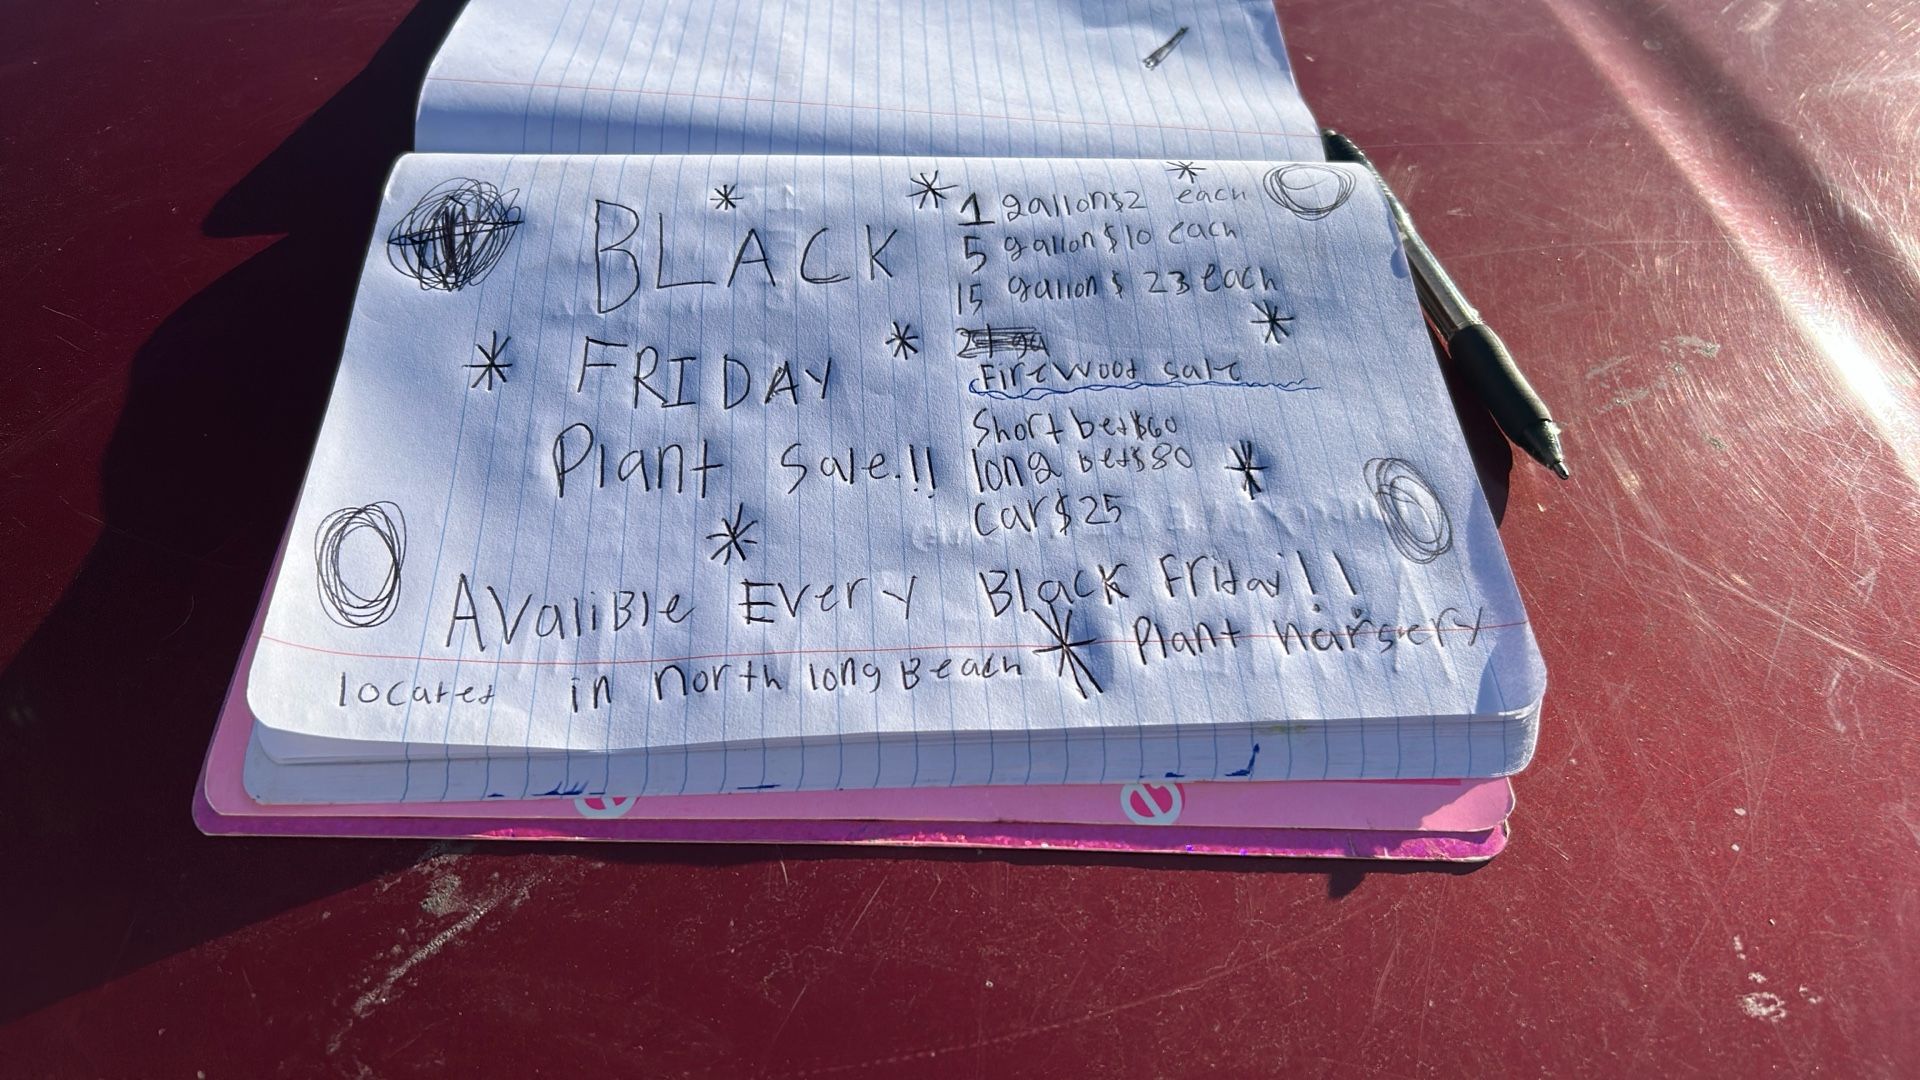 BLACK
FRIDAY
Plant Sale.!!
1 gallon$2 each
5 gallon $10 each
15 gallon $ 23 each
Firewood sale
Short bed$60
long bed$80
Car $25
AValiBle Every Black Friday!!
located in north long Beach
Plant narsery